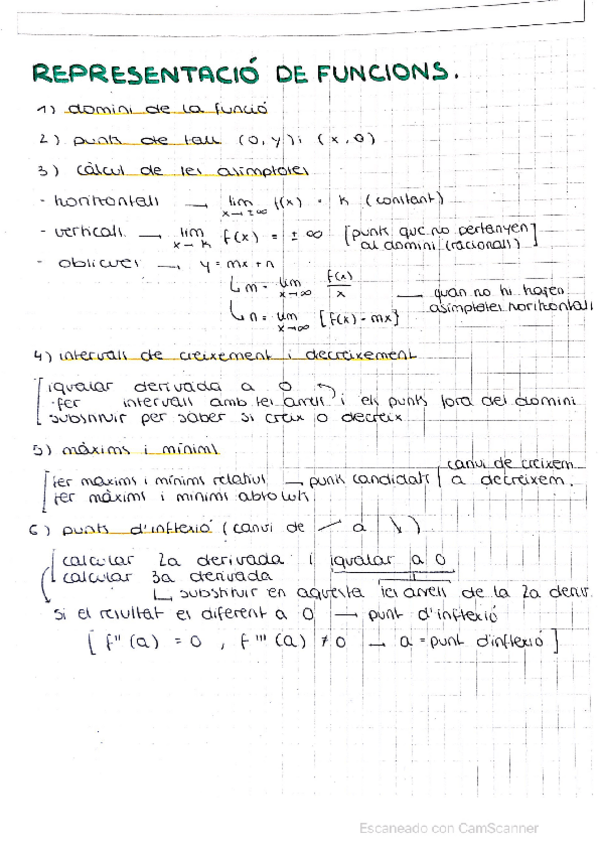 REPRESENTACIÓ DE FUNCIONS.
1) domini de la funció
2) punts de tall (0, y) i (x, 0)
3) càlcul de les asímptotes
- horitzontals → lim x→±∞ f(x) = k (constant)
- verticals → lim x→k f(x) = ±∞ [punts que no pertanyen al domini (racionals)]
- obliqües → y = mx + n
↳ m = lim x→∞ f(x)/x
↳ n = lim x→∞ [f(x) - mx] → quan no hi hagen asímptotes horitzontals
4) intervals de creixement i decreixement
igualar derivada a 0
fer intervals amb les arrels i els punts fora del domini
substituir per saber si creix o decreix
5) màxims i mínims
fer màxims i mínims relatius → punts candidats | canvi de creixem. a decreixem.
fer màxims i mínims absoluts
6) punts d'inflexió (canvi de a )
calcular 2a derivada i igualar a 0
calcular 3a derivada
↳ substituir en aquesta les arrels de la 2a deriv.
si el resultat es diferent a 0 → punt d'inflexió
[f''(a) = 0, f'''(a) ≠ 0 → a = punt d'inflexió]
Escaneado con CamScanner